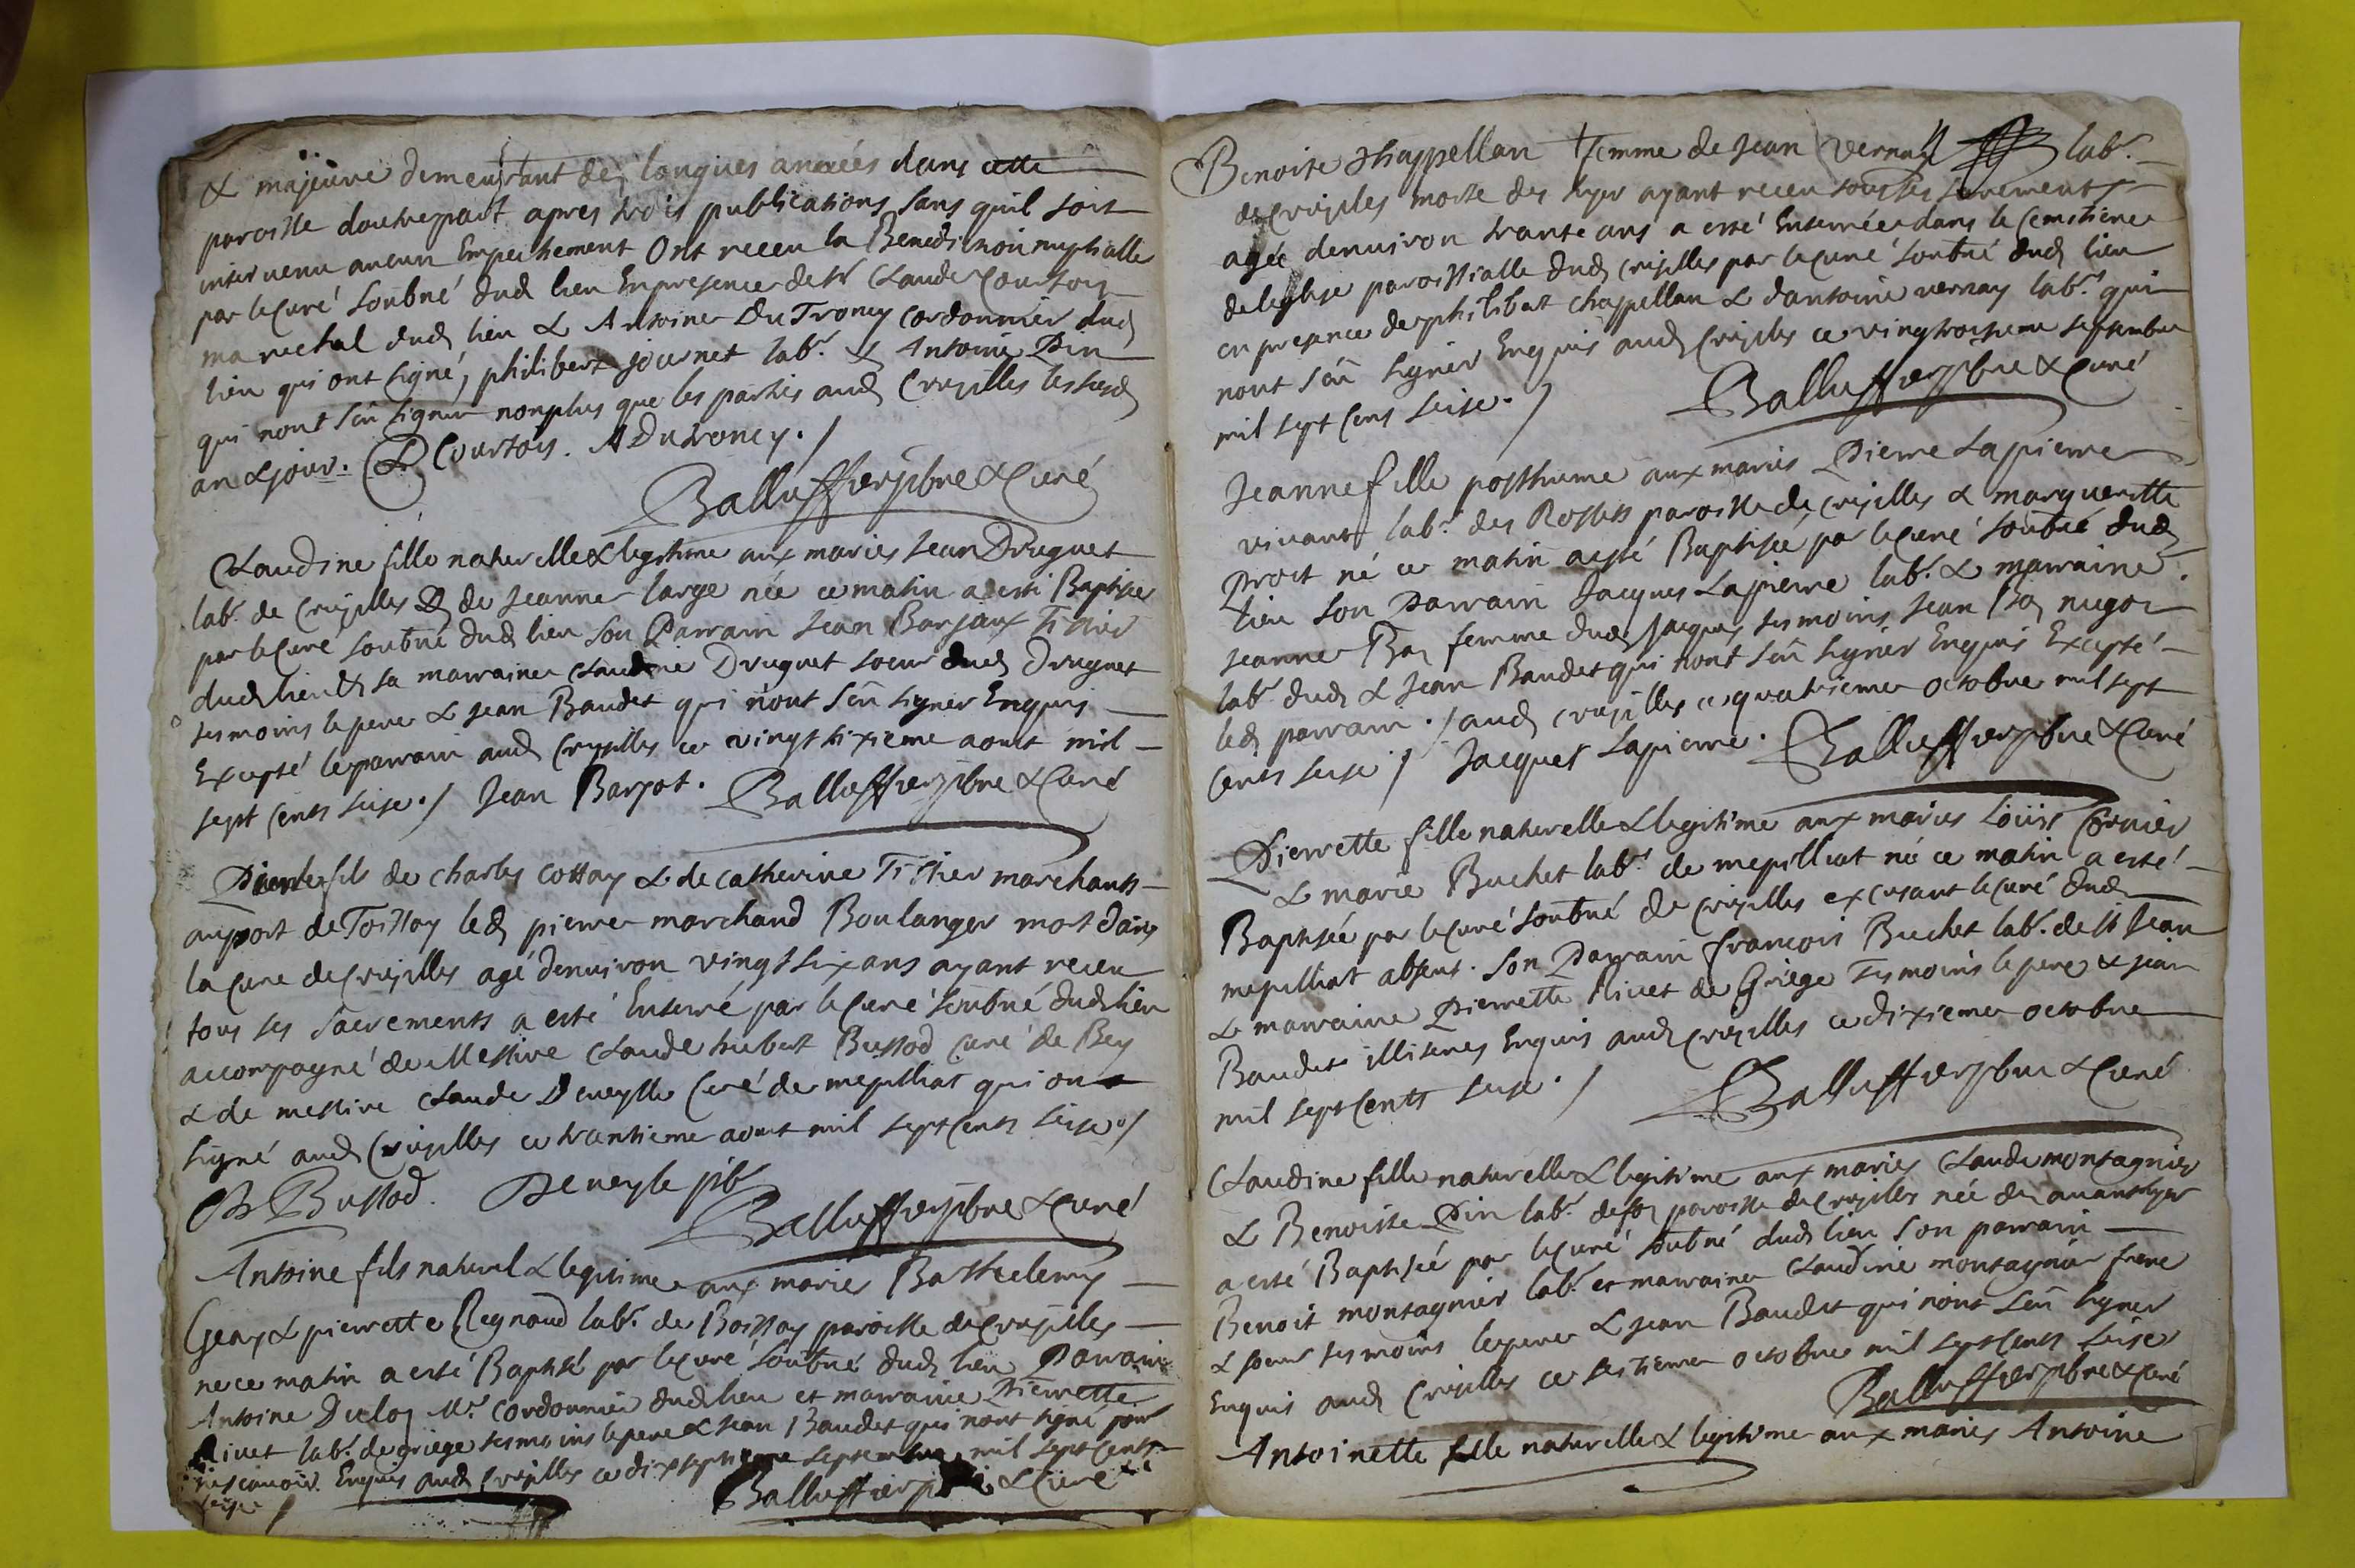 & majeure demeurant des longues années dans cette
paroisse doutrepart apres trois publications sans quil soit
intervenu aucun Empechement Ont receu la Benediction nuptialle
par le Curé soubné dud lieu En presence de Claude Courtois
marechal dud lieu & Antoine Du Troncy cordonnier dud
lieu qui ont signé, philibert journet lab.r & Antoine Pin
qui nont sçu signer nonplus que les parties aud Crujilles les susd
an & jour. C Courtois. A Dutroncy. /
Balluffier pbre & Curé
Claudine fille naturelle & legitime aux mariés Jean Druguet
lab.r de Crujilles & de Jeanne large née ce matin a esté Baptisée
par le Curé soubné dud lieu son Parrain Jean Barjaux Tissier
dud lieu & sa marraine Claudine Druguet soeur dud Druguet
tesmoins le pere & jean Baudet qui nont sçu signer Enquis
Excepté le parrain aud Crujilles ce vingt sixieme aoust mil
sept cents seise. / Jean Barjot. Balluffier pbre & Curé
Pierre fils de charles cottay & de catherine Tissier marchants
au port de Toissay led pierre marchand Boulanger mort dans
la Cure de Crujilles agé denuiron vingt six ans ayant receu
tous ses sacrements a esté Enterré par le Curé soubné dud lieu
accompagné de Messire Claude hubert Bussod Curé de Bey
& de messire Claude Deneyble Curé de mepilliat qui ont
signé aud Crujilles ce trantieme aoust mil sept cents seise. /
Bussod. Deneyble pb
Balluffier pbre & Curé
Antoine fils naturel & legitime aux mariés Barthelemy
Geay & pierrette Regnaud lab.r de Boissay paroisse de Crujilles
né ce matin a esté Baptisé par le Curé soubné dud lieu Parrain
Antoine Duclos M.r Cordonnier dud lieu et marraine Pierrette
Nivet lab.r de griege tesmoins le pere & jean Baudet qui nont signé pour
sçavoir Enquis aud Crujilles ce dixseptieme septembre mil sept cents
seise / Balluffier & Curé
Benoite Chappellan femme de Jean Vernay lab.r
de Crujilles morte des hyer ayant receu tous ses sacrements
agée denuiron trante ans a esté Enterrée dans le Cemitiere
de leglise paroissialle dud Crujilles par le Curé soubné dud lieu
en presence de philibert Chappellan & dantoine vernay lab.r qui
nont sçu signer Enquis aud Crujilles ce vingtroisieme septembre
mil sept cens seise. / Balluffier pbre & Curé
Jeanne fille posthume aux mariés Pierre Lapierre
vivant lab.r des Rossets paroisse de Crujilles & marguerite
Prost né ce matin a esté Baptisée par le Curé soubné dud
lieu son Parrain Jacques Lapierre lab.r & marraine
jeanne Bas femme dud Jacques tesmoins Jean nugoz
lab.r dud & Jean Baudet qui nont sçu signer Enquis Excepté
led parrain. / aud Crujilles ce quatrieme octobre mil sept
cents seise / Jacques Lapierre. Balluffier pbre & Curé
Pierrette fille naturelle & legitime aux mariés Loüis Cornier
& marie Buchet lab.r de mepilliat né ce matin a esté
Baptisée par le Curé soubné de Crujilles excusant le Curé dud
mepilliat absent. son Parrain françois Buchet lab.r de St Jean
& marraine Pierrette Nivet de Griege Tesmoins le pere & jean
Baudet illiteres Enquis aud Crujilles ce dixieme octobre
mil sept cents seise. / Balluffier pbre & Curé
Claudine fille naturelle & legitime aux mariés Claude montagnier
& Benoiste Pin lab.r paroisse de Crujilles née des auanthyer
a esté Baptisée par le Curé soubné dud lieu son parrain
Benoit montagnier lab.r et marraine Claudine montagnier frere
& soeur tesmoins le pere & jean Baudet qui nont sçu signer
Enquis aud Crujilles ce octobre mil sept cents seise
Balluffier pbre & Curé
Antoinette fille naturelle & legitime aux mariés Antoine